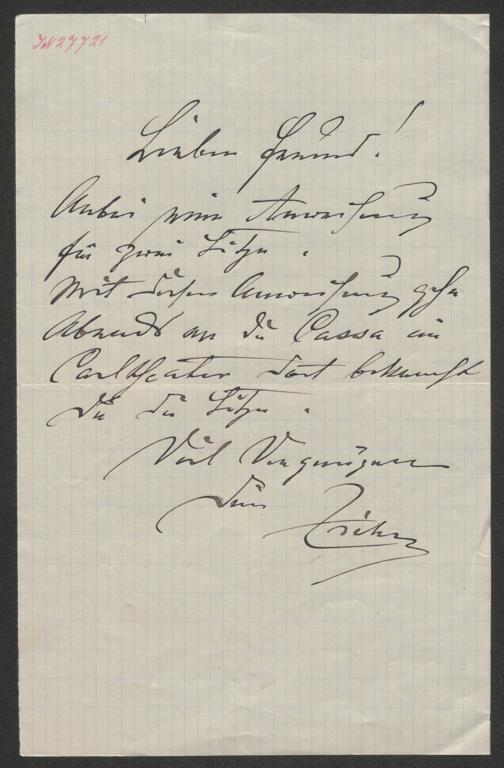 IN 27721
Lieber Freund!
Anbei eine Anweisung
für zwei Sitze.
Mit dieser Anweisung gehe
Abends an die Cassa im
Carltheater dort bekommst
Du die Sitze.
Viel Vergnügen
Dein Ziehrer